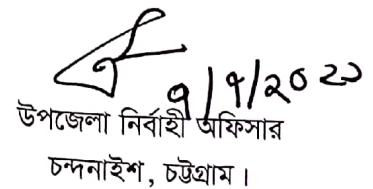 উপজেলা নির্বাহী অফিসার
চন্দনাইশ, চট্টগ্রাম।